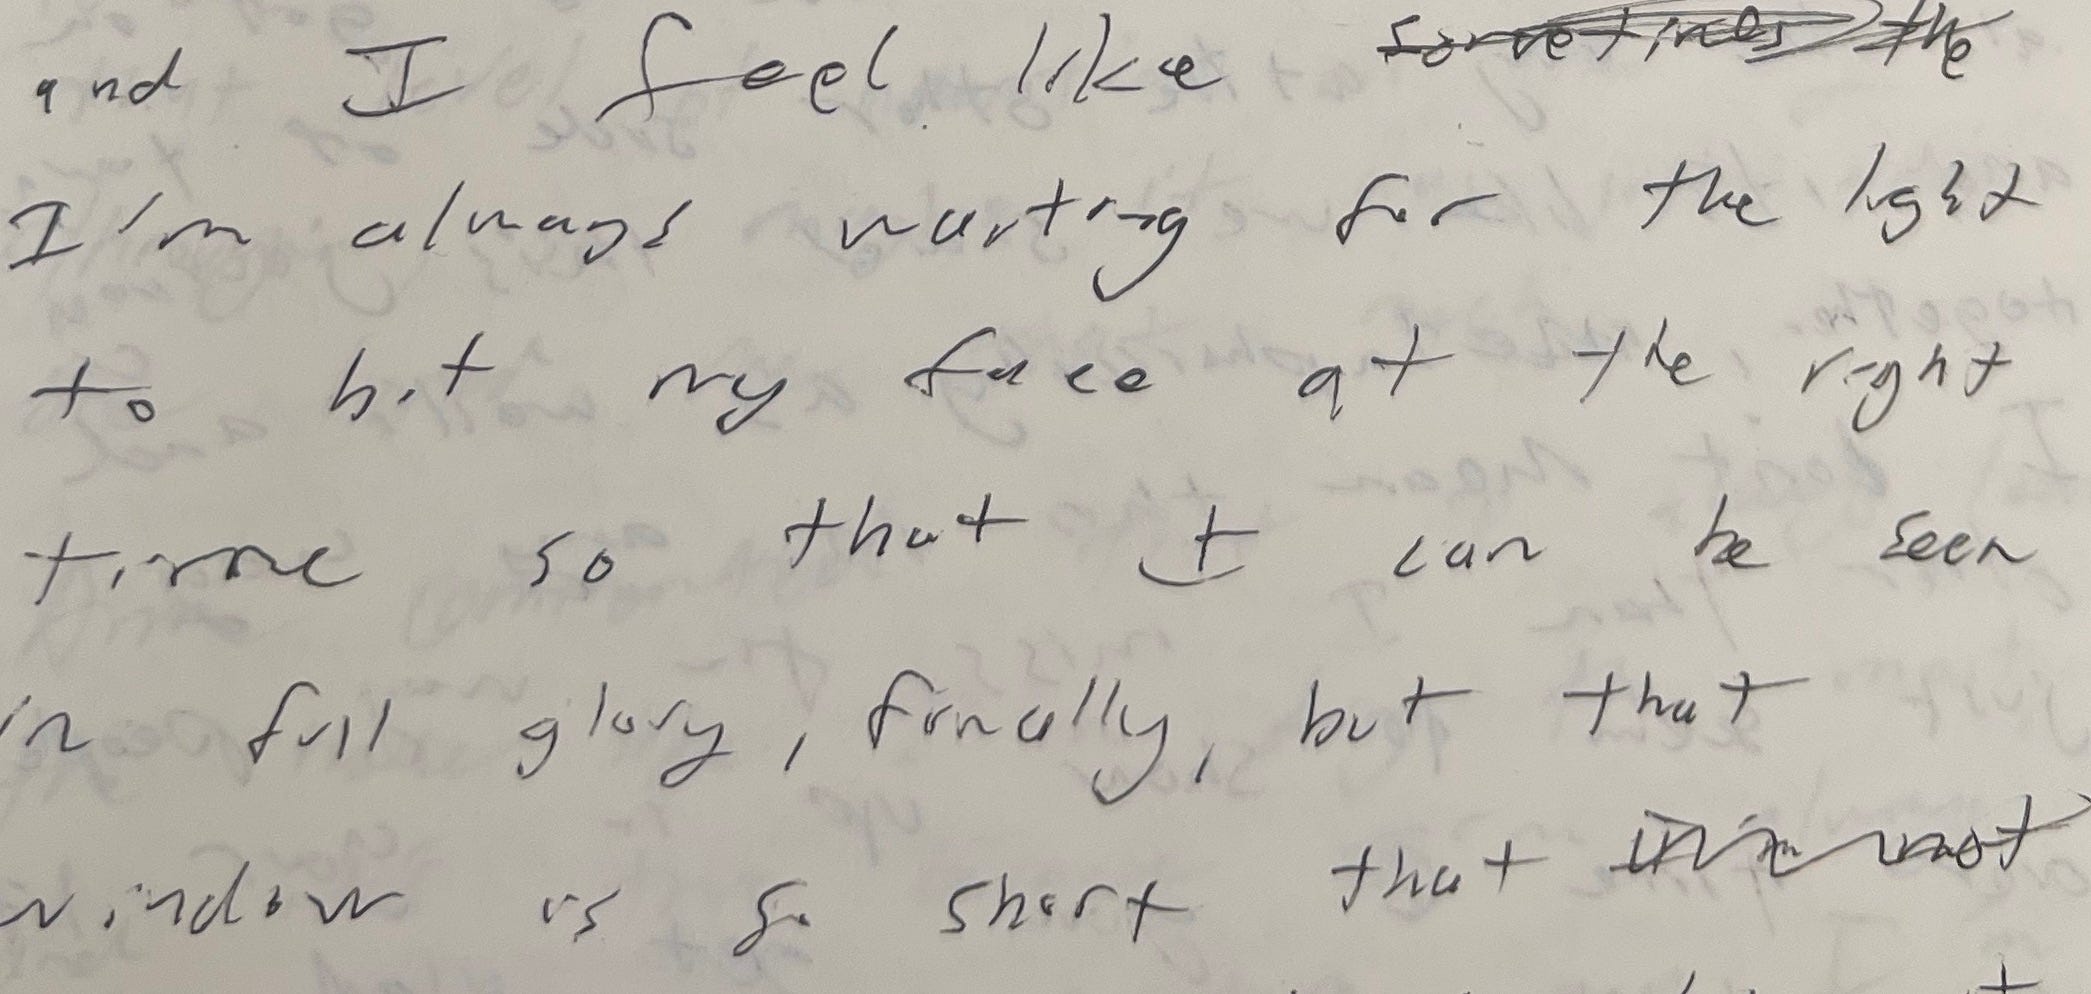 and I feel like sometimes the
I'm always waiting for the light
to hit my face at the right
time so that I can be seen
in full glory, finally, but that
window is so short that I'm not